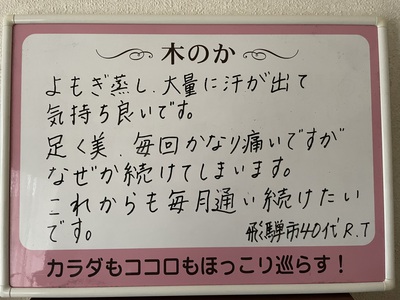 木のか
よもぎ蒸し、大量に汗が出て
気持ち良いです。
足く美、毎回かなり痛いですが
なぜか続けてしまいます。
これからも毎月通い続けたい
です。
飛騨市40代R.T
カラダもココロもほっこり巡らす！